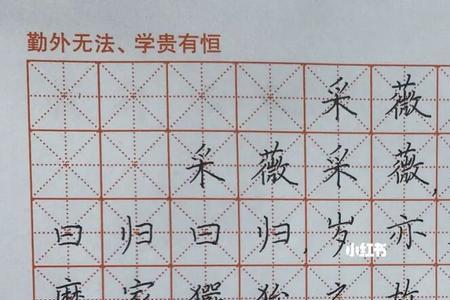 勤外无法、学贵有恒
采薇
采薇采薇,
曰归曰归,岁亦
小红书
靡家